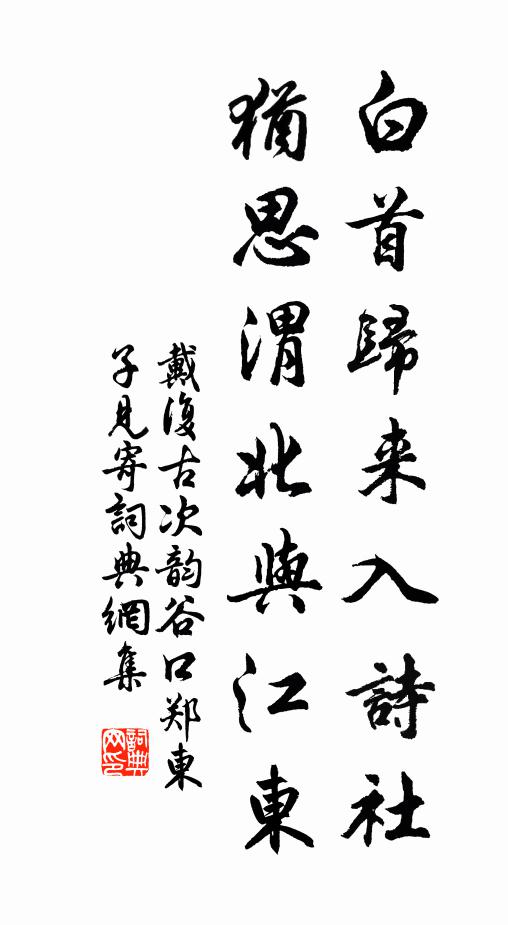 白首歸来入詩社
猶思渭北與江東
戴復古次韵谷口郑東
子見寄詞典網集
詞典网印